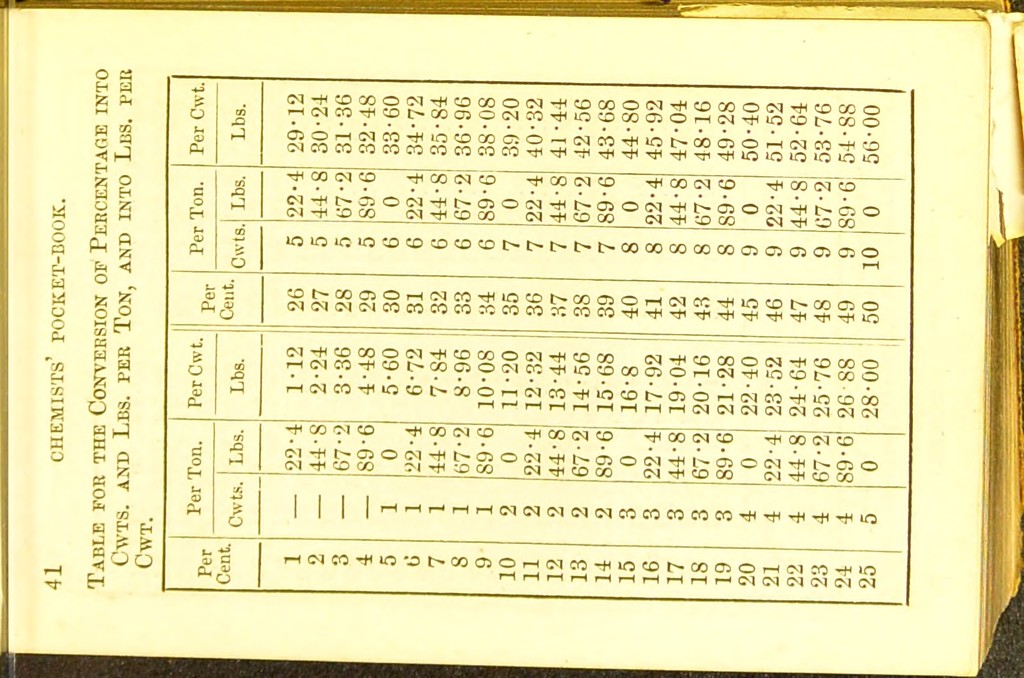 41 CHEMISTS' POCKET-BOOK.
TABLE FOR THE CONVERSION OF PERCENTAGE INTO
CWTS. AND LBS. PER TON, AND INTO LBS. PER
CWT.
Per Cent. Per Ton. Per Cwt. Per Cent. Per Ton. Per Cwt.
Cwts. Lbs. Lbs. Cwts. Lbs. Lbs.
1 — 22·4 1·12 26 5 22·4 29·12
2 — 44·8 2·24 27 5 44·8 30·24
3 — 67·2 3·36 28 5 67·2 31·36
4 — 89·6 4·48 29 5 89·6 32·48
5 1 0 5·60 30 6 0 33·60
6 1 22·4 6·72 31 6 22·4 34·72
7 1 44·8 7·84 32 6 44·8 35·84
8 1 67·2 8·96 33 6 67·2 36·96
9 1 89·6 10·08 34 6 89·6 38·08
10 2 0 11·20 35 7 0 39·20
11 2 22·4 12·32 36 7 22·4 40·32
12 2 44·8 13·44 37 7 44·8 41·44
13 2 67·2 14·56 38 7 67·2 42·56
14 2 89·6 15·68 39 7 89·6 43·68
15 3 0 16·8 40 8 0 44·80
16 3 22·4 17·92 41 8 22·4 45·92
17 3 44·8 19·04 42 8 44·8 47·04
18 3 67·2 20·16 43 8 67·2 48·16
19 3 89·6 21·28 44 8 89·6 49·28
20 4 0 22·40 45 9 0 50·40
21 4 22·4 23·52 46 9 22·4 51·52
22 4 44·8 24·64 47 9 44·8 52·64
23 4 67·2 25·76 48 9 67·2 53·76
24 4 89·6 26·88 49 9 89·6 54·88
25 5 0 28·00 50 10 0 56·00